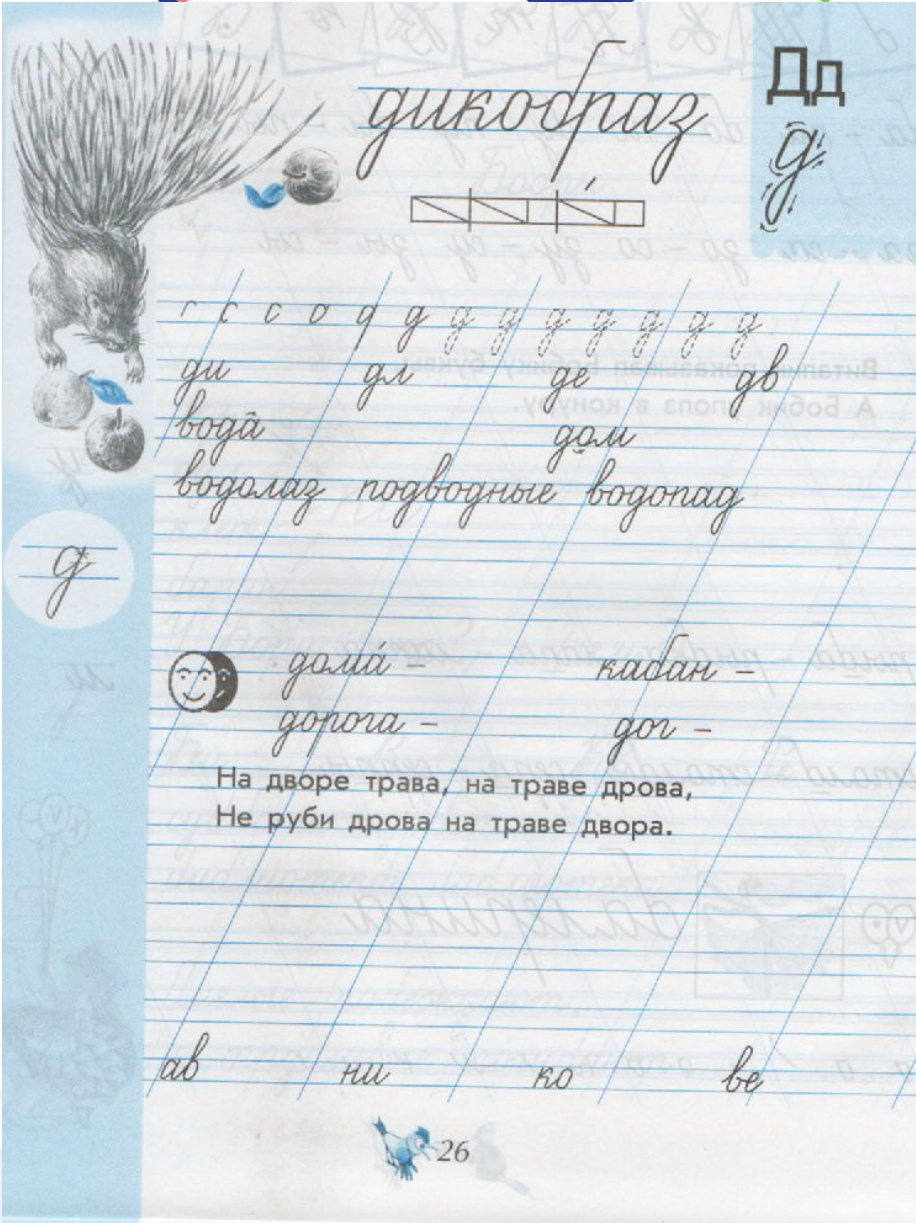 дикобраз
Дд
д
г с с о д д д д д д д д д
ди дл де дв
вода дом
водолаз подводные водопад
д
дома́ – кабан –
дорога – дог –
На дворе трава, на траве дрова,
Не руби дрова на траве двора.
ав ни ко ве
26